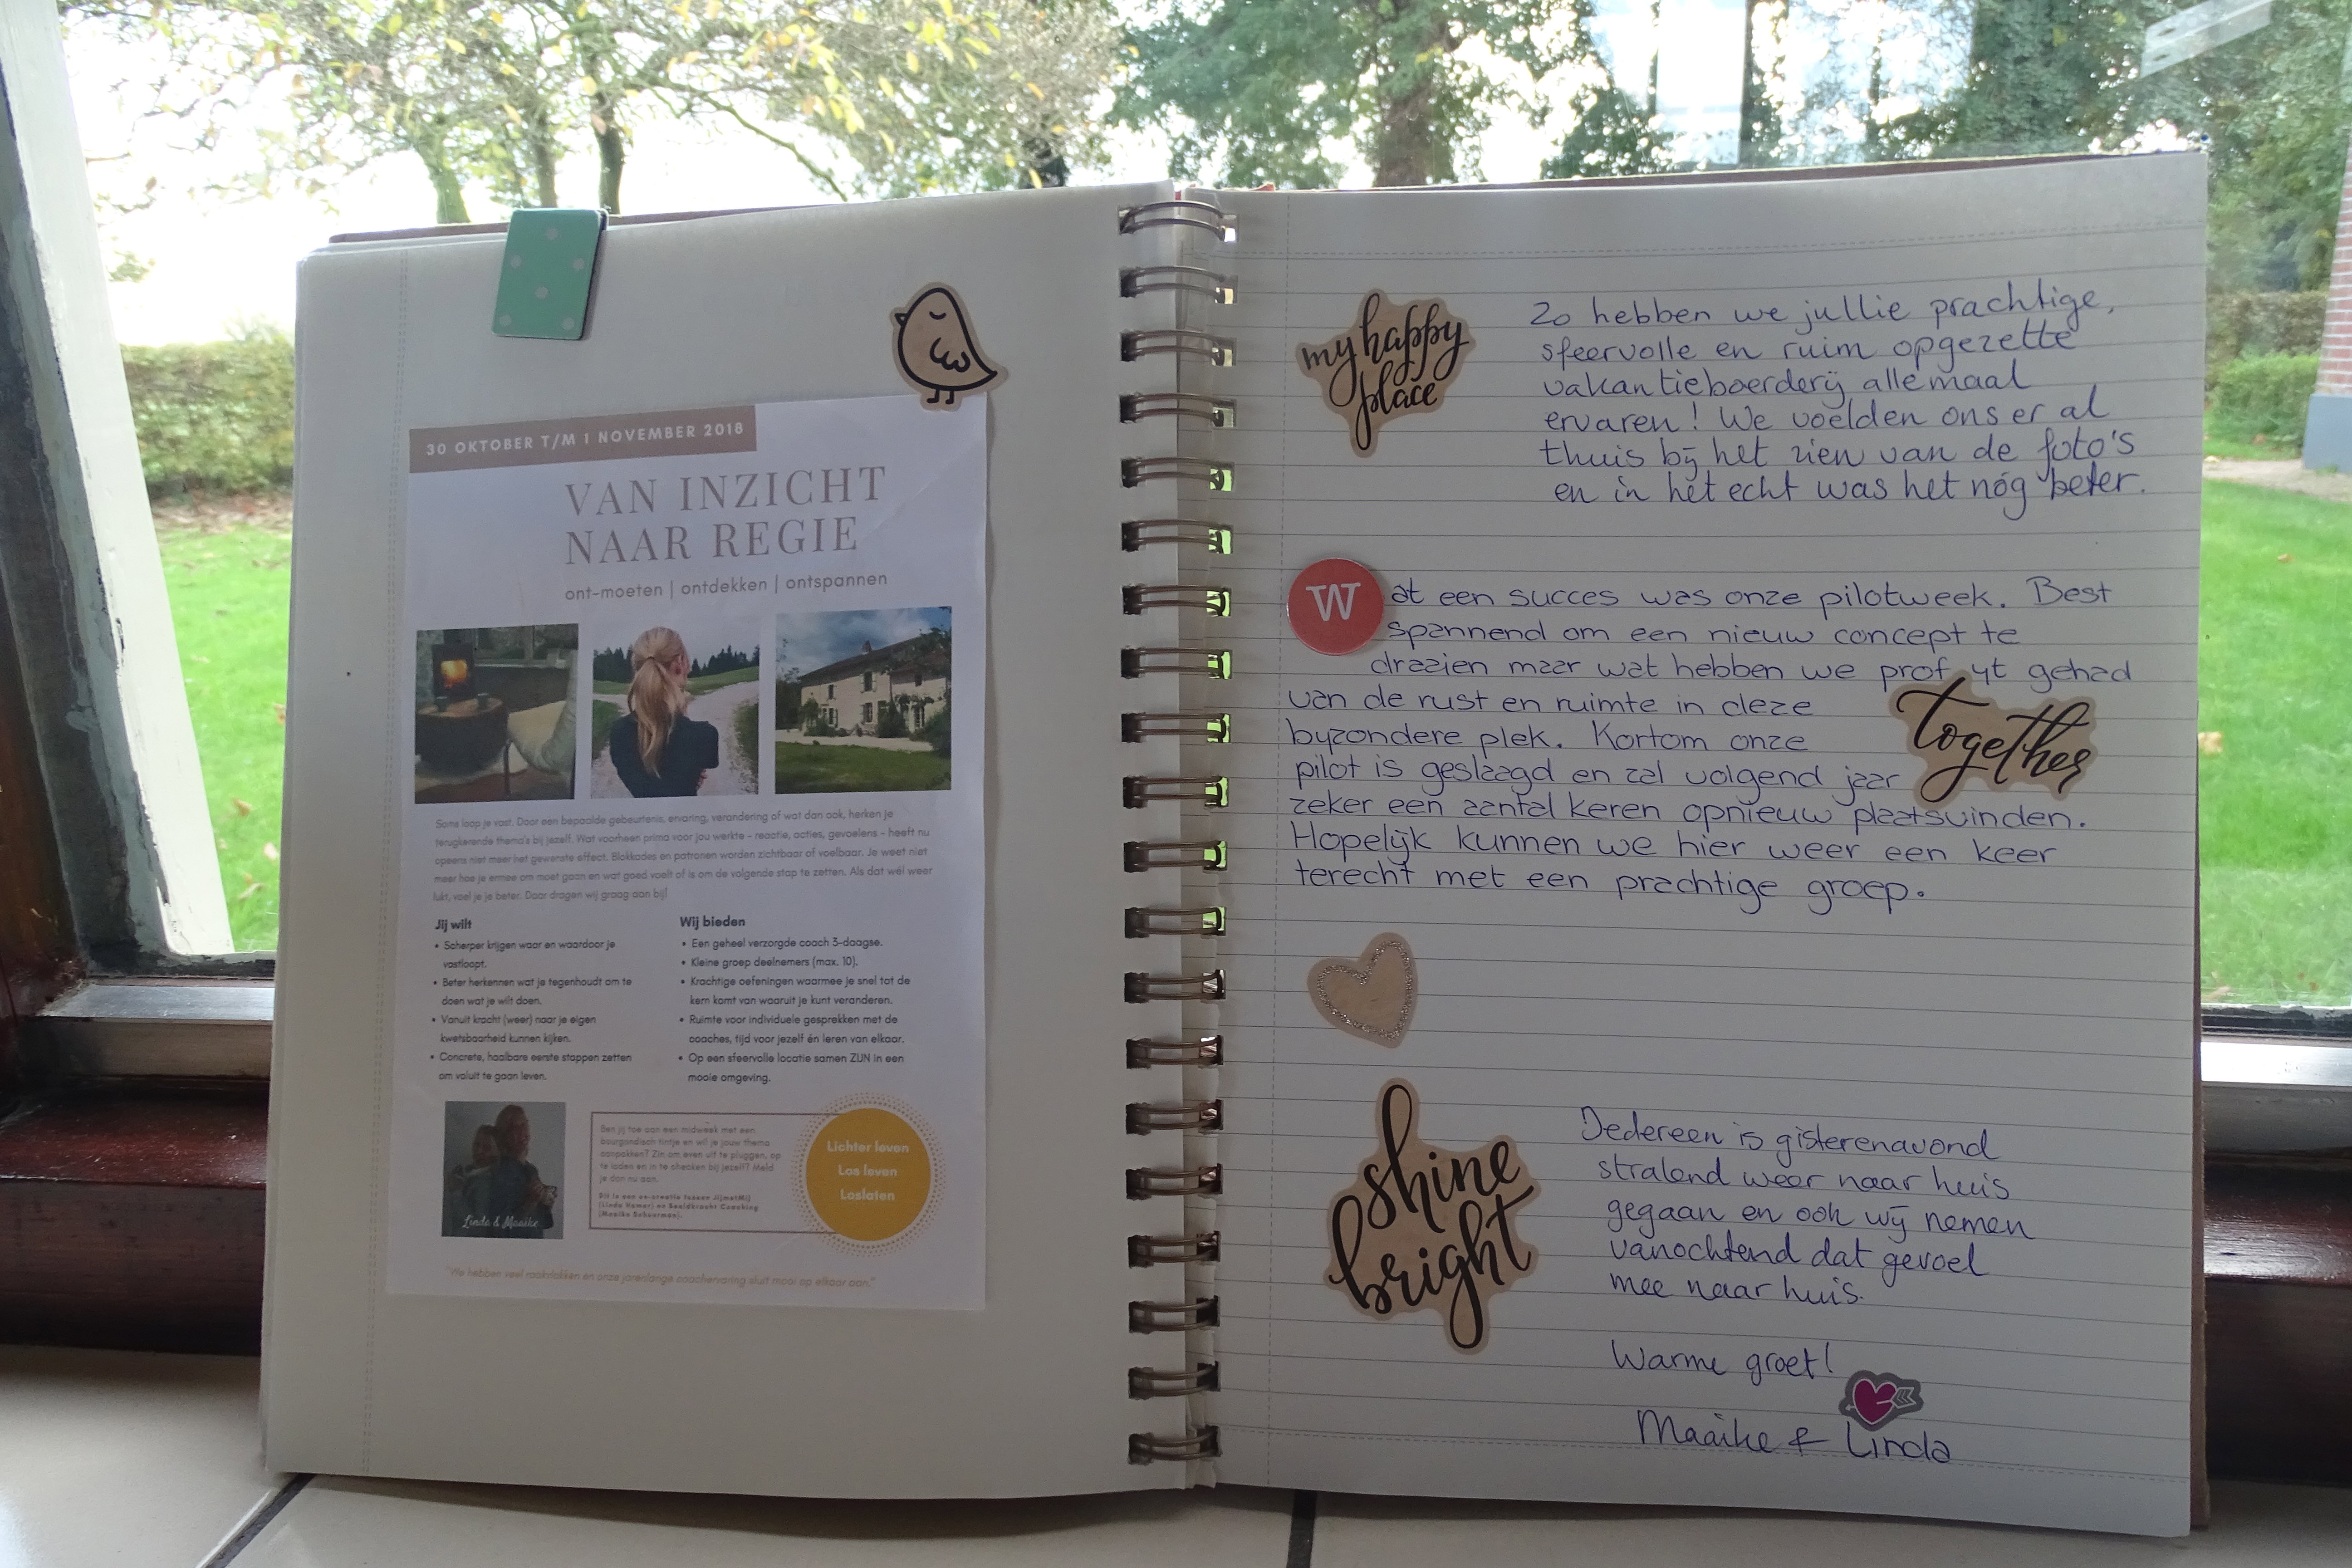 30 OKTOBER T/M 1 NOVEMBER 2018
VAN INZICHT
NAAR REGIE
ont-moeten | ontdekken | ontspannen
Soms loop je vast. Door een bepaalde gebeurtenis, ervaring, verandering of wat dan ook, herken je
terugkerende thema's bij jezelf. Wat voorheen prima voor jou werkte - reactie, acties, gevoelens - heeft nu
opeens niet meer het gewenste effect. Blokkades en patronen worden zichtbaar of voelbaar. Je weet niet
meer hoe je ermee om moet gaan en wat goed voelt of is om de volgende stap te zetten. Als dat wél weer
lukt, voel je je beter. Daar dragen wij graag aan bij!
Jij wilt
• Scherper krijgen waar en waardoor je
vastloopt.
• Beter herkennen wat je tegenhoudt om te
doen wat je wilt doen.
• Vanuit kracht (weer) naar je eigen
kwetsbaarheid kunnen kijken.
• Concrete, haalbare eerste stappen zetten
om voluit te gaan leven.
Wij bieden
• Een geheel verzorgde coach 3-daagse.
• Kleine groep deelnemers (max. 10).
• Krachtige oefeningen waarmee je snel tot de
kern komt van waaruit je kunt veranderen.
• Ruimte voor individuele gesprekken met de
coaches, tijd voor jezelf én leren van elkaar.
• Op een sfeervolle locatie samen ZIJN in een
mooie omgeving.
Linda & Maaike
Ben jij toe aan een midweek met een
bourgondisch tintje en wil je jouw thema
aanpakken? Zin om even uit te pluggen, op
te laden en in te checken bij jezelf? Meld
je dan nu aan.
Dit is een co-creatie tussen JijmetMij
(Linda Hamer) en Beeldkracht Coaching
(Maaike Schuurman).
Lichter leven
Los leven
Loslaten
"We hebben veel raakvlakken en onze jarenlange coachervaring sluit mooi op elkaar aan."
my happy
place
Zo hebben we jullie prachtige,
sfeervolle en ruim opgezette
vakantieboerderij allemaal
ervaren! We voelden ons er al
thuis bij het zien van de foto's
en in het echt was het nóg beter.
Wat een succes was onze pilotweek. Best
spannend om een nieuw concept te
draaien maar wat hebben we profijt gehad
van de rust en ruimte in deze
bijzondere plek. Kortom onze
together
pilot is geslaagd en zal volgend jaar
zeker een aantal keren opnieuw plaatsvinden.
Hopelijk kunnen we hier weer een keer
terecht met een prachtige groep.
shine
bright
Iedereen is gisterenavond
stralend weer naar huis
gegaan en ook wij nemen
vanochtend dat gevoel
mee naar huis.
Warme groet!
Maaike & Linda